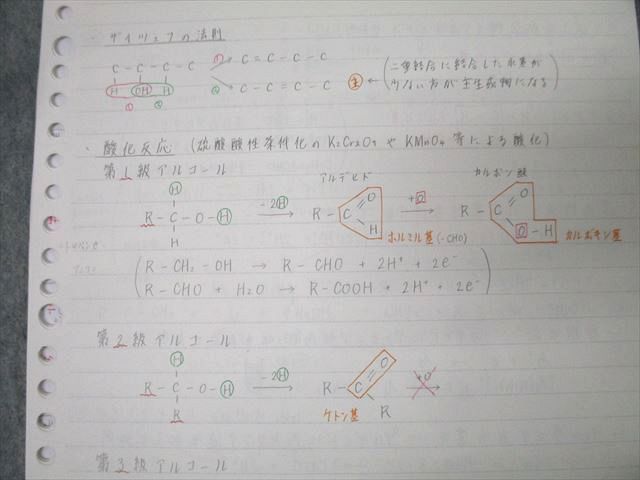 ・ザイツェフの法則
C - C - C - C
H OH H
① ②
① C = C - C - C
② C - C = C - C ㊟
← (二重結合に結合した水素が少ない方が主生成物になる)
・酸化反応 (硫酸酸性条件化のK₂Cr₂O₇やKMnO₄等による酸化)
第1級アルコール
アルデヒド
カルボン酸
H
R - C - O - H
H
-2H →
R - C = O
H
+O →
R - C = O
O - H
ホルミル基(-CHO)
カルボキシ基
R - CH₂ - OH → R - CHO + 2H⁺ + 2e⁻
R - CHO + H₂O → R - COOH + 2H⁺ + 2e⁻
第2級アルコール
H
R - C - O - H
R
-2H →
R - C = O
R
+O →
ケトン基
第3級アルコール